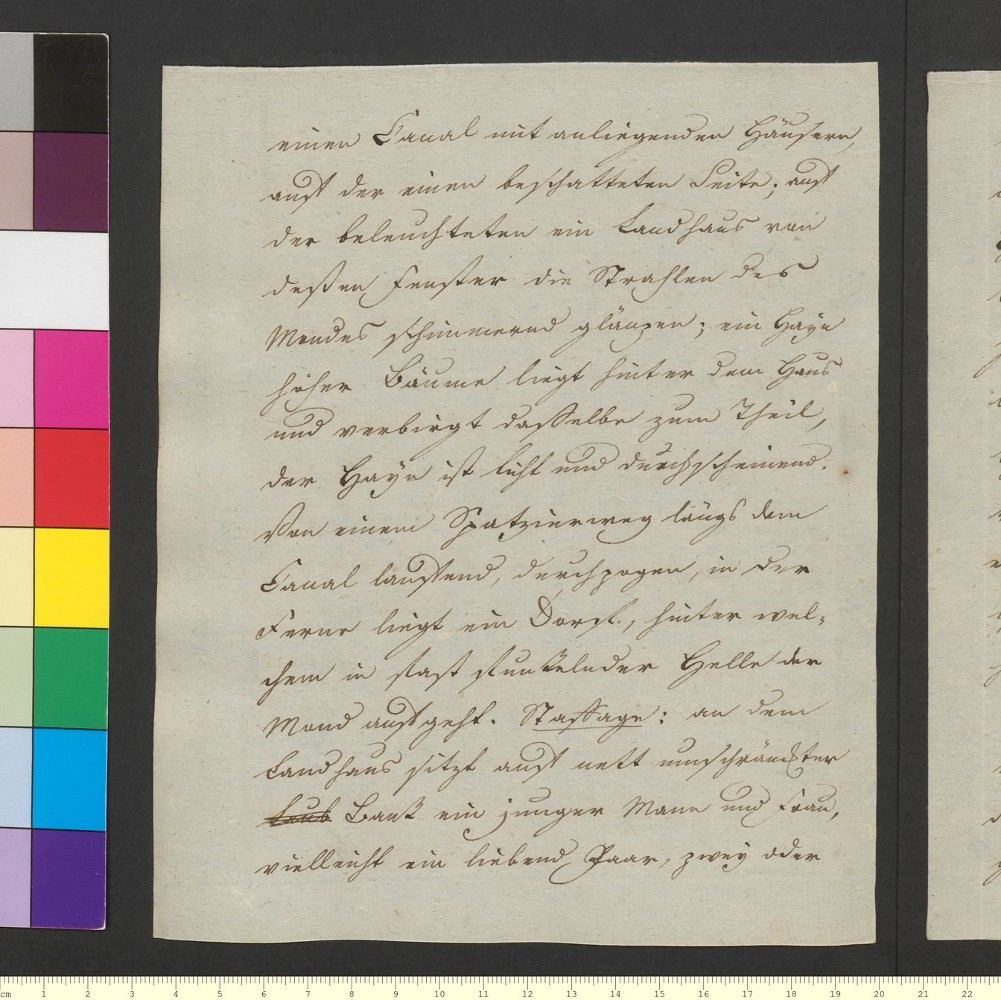 einen Canal mit anliegenden Häusern,
auf der einen beschatteten Seite; auf
der beleuchteten ein Landhaus von
deßen Fenster die Strahlen des
Mondes schimmernd glänzen; ein Hayn
hoher Bäume liegt hinter dem Haus
und verbirgt dasselbe zum Theil,
der Hayn ist licht und durchscheinend.
Von einem Spatzierweg längs dem
Canal laufend, durchzogen, in der
Ferne liegt ein Dorf, hinter wel-
chem in fast funkelnder Helle der
Mond aufgeht. Staffage: an dem
Landhaus sitzt auf nett umschränkter
Laub Bank ein junger Mann und Frau,
vielleicht ein liebend Paar, zwey oder
cm 1 2 3 4 5 6 7 8 9 10 11 12 13 14 15 16 17 18 19 20 21 22